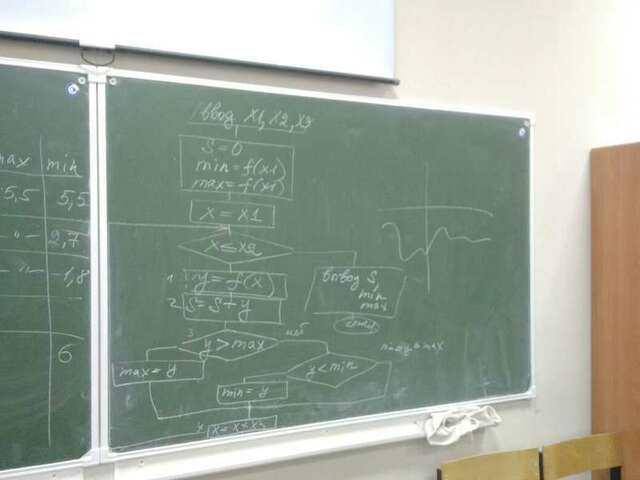 max min
5,5 5,5
-"- 2,7
-"- -1,8
6
ввод x1, x2, x3
S=0
min=f(x1)
max=f(x1)
x=x1
x≤x2
1 y=f(x)
2 S=S+y
вывод S,
min
max
3 y>max
max=y
y<min
min=y
4 x=x+x3